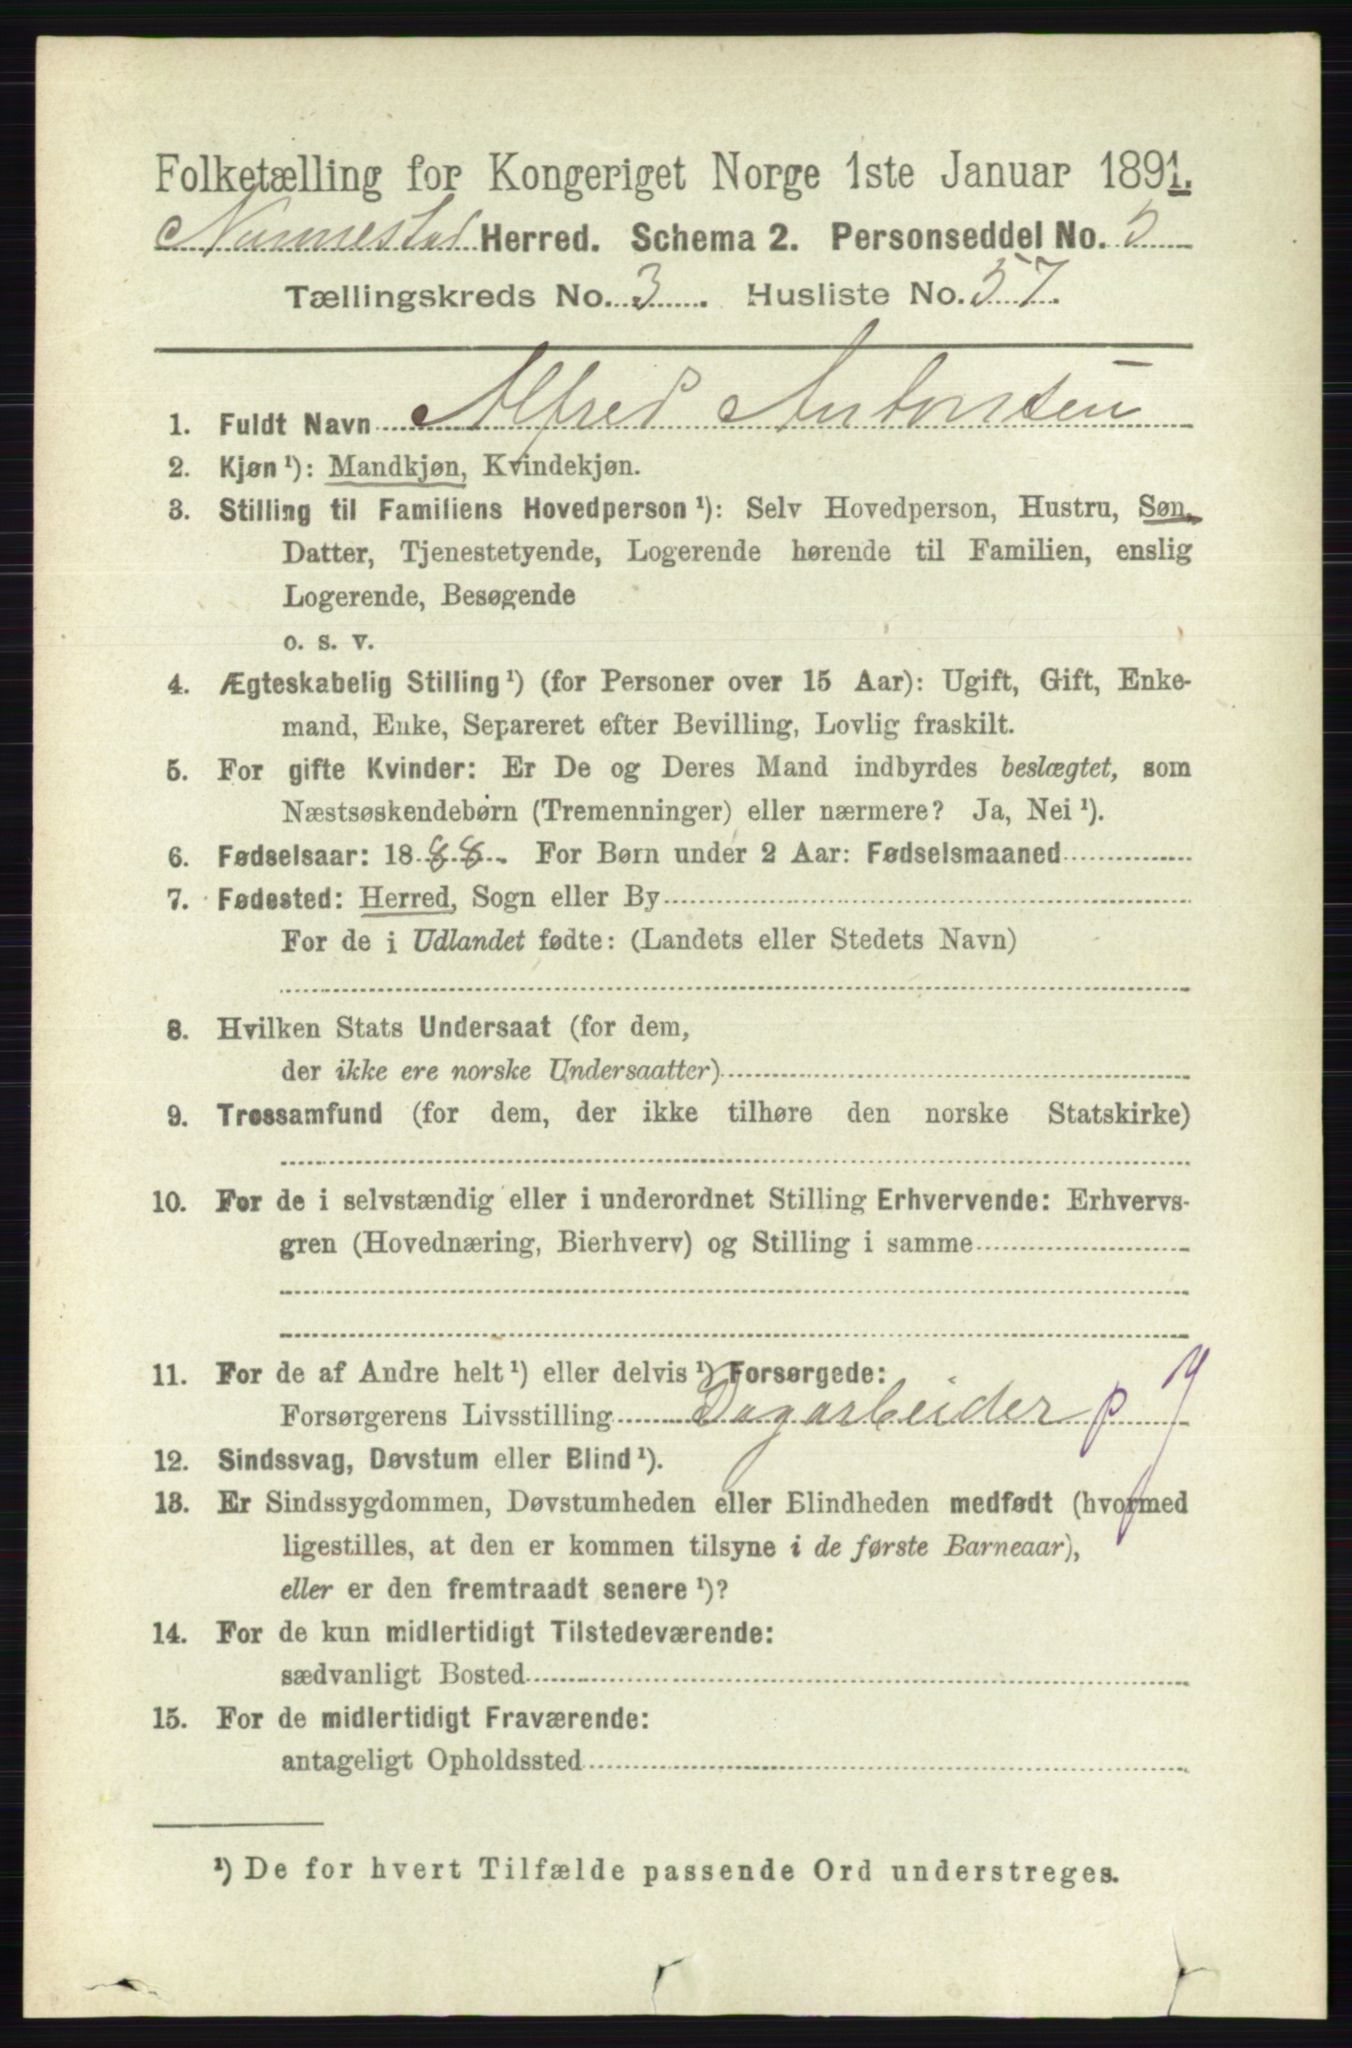 Folketælling for Kongeriget Norge 1ste Januar 1891.
Nannestad Herred. Schema 2. Personseddel No. 5
Tællingskreds No. 3. Husliste No. 57.
1. Fuldt Navn Alfred Antonsen
2. Kjøn ¹): Mandkjøn, Kvindekjøn.
3. Stilling til Familiens Hovedperson ¹): Selv Hovedperson, Hustru, Søn,
Datter, Tjenestetyende, Logerende hørende til Familien, enslig
Logerende, Besøgende
o. s. v.
4. Ægteskabelig Stilling ¹) (for Personer over 15 Aar): Ugift, Gift, Enke-
mand, Enke, Separeret efter Bevilling, Lovlig fraskilt.
5. For gifte Kvinder: Er De og Deres Mand indbyrdes beslægtet, som
Næstsøskendebørn (Tremenninger) eller nærmere? Ja, Nei ¹).
6. Fødselsaar: 1888. For Børn under 2 Aar: Fødselsmaaned
7. Fødested: Herred, Sogn eller By
For de i Udlandet fødte: (Landets eller Stedets Navn)
8. Hvilken Stats Undersaat (for dem,
der ikke ere norske Undersaatter)
9. Trossamfund (for dem, der ikke tilhøre den norske Statskirke)
10. For de i selvstændig eller i underordnet Stilling Erhvervende: Erhvervs-
gren (Hovednæring, Bierhverv) og Stilling i samme
11. For de af Andre helt ¹) eller delvis ¹) Forsørgede:
Forsørgerens Livsstilling Dagarbeider p
12. Sindssvag, Døvstum eller Blind ¹).
13. Er Sindssygdommen, Døvstumheden eller Blindheden medfødt (hvormed
ligestilles, at den er kommen tilsyne i de første Barneaar),
eller er den fremtraadt senere ¹)?
14. For de kun midlertidigt Tilstedeværende:
sædvanligt Bosted
15. For de midlertidigt Fraværende:
antageligt Opholdssted
¹) De for hvert Tilfælde passende Ord understreges.